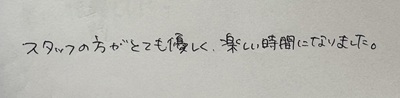 スタッフの方がとても優しく、楽しい時間になりました。